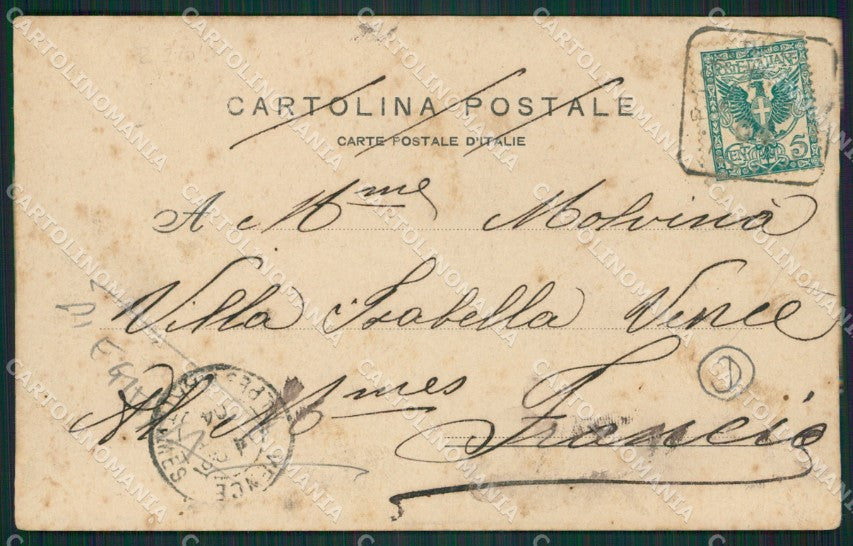 CARTOLINA POSTALE
CARTE POSTALE D'ITALIE
POSTE ITALIANE
CENT. 5
A Mme Molvina
Villa Isabella Vence
Alp Mmes
Francia
VENCE
04
ALPES MARITIMES
CARTOLINOMANIA